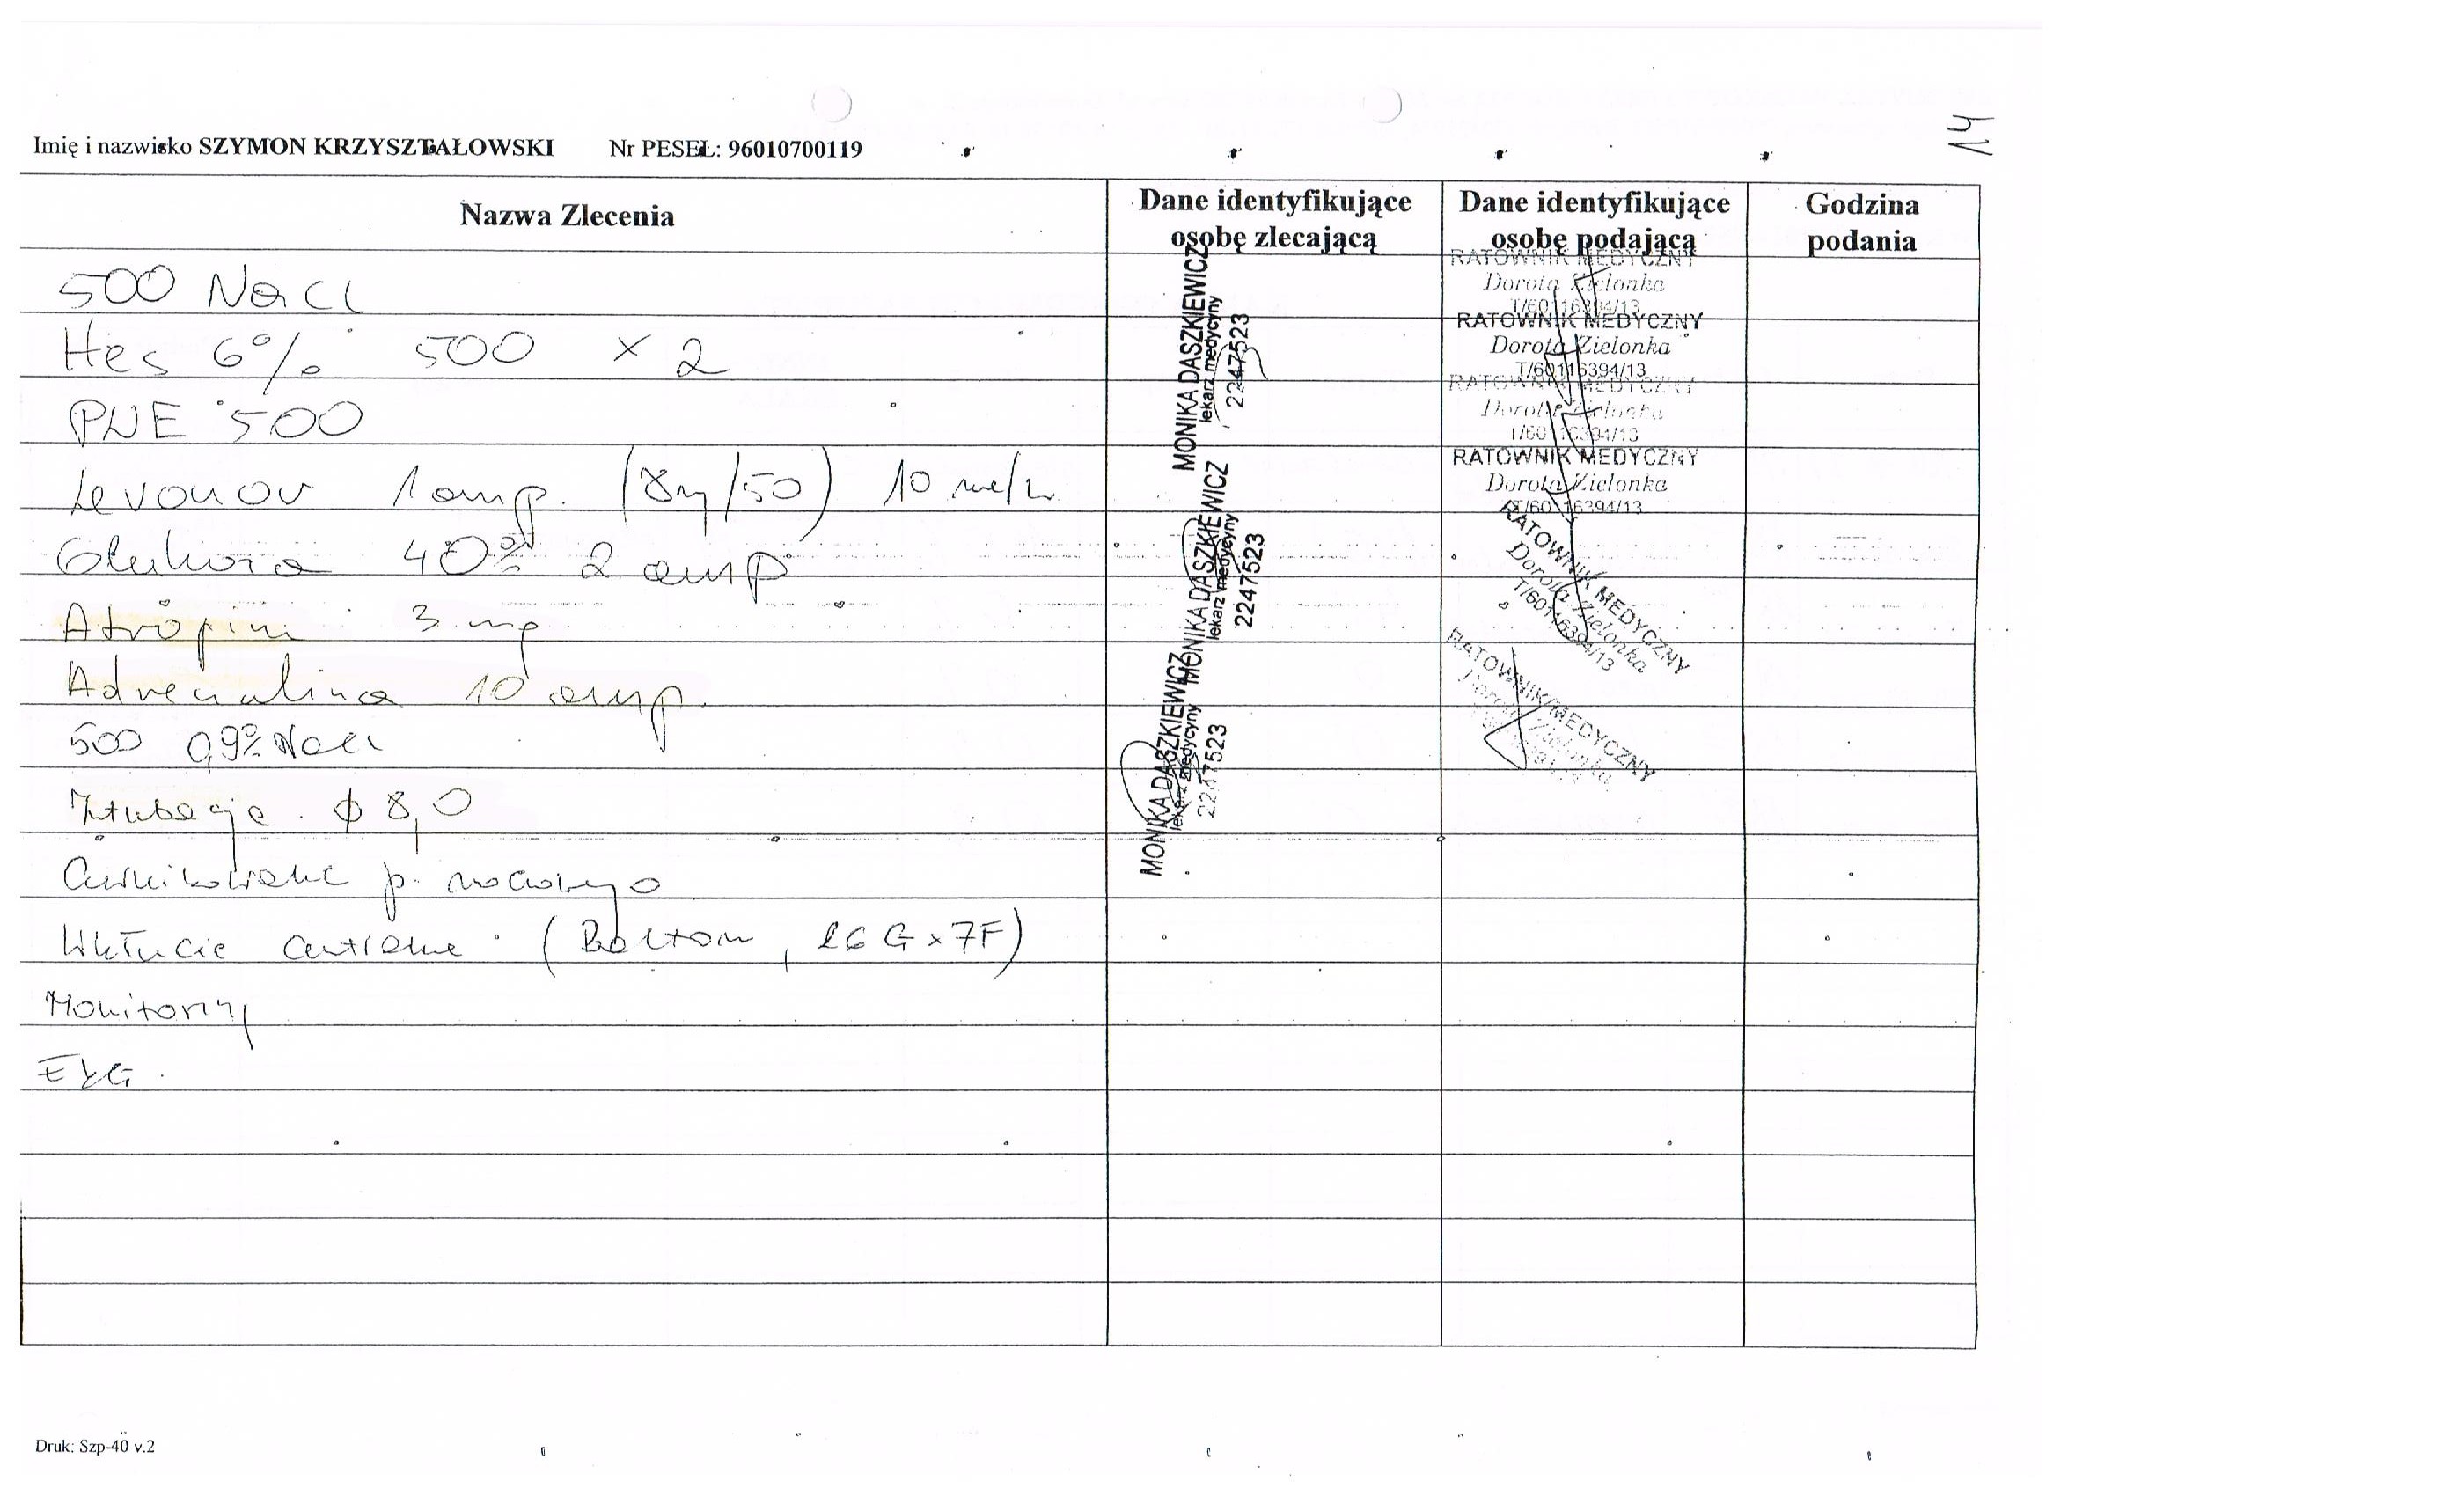 14
Imię i nazwisko SZYMON KRZYSZTAŁOWSKI Nr PESEL: 96010700119
Nazwa Zlecenia
Dane identyfikujące osobę zlecającą
Dane identyfikujące osobę podającą
Godzina podania
500 NaCl
Hes 6% 500 x 2
PWE 500
Levonor 1 amp. (8mg/50) 10 ml/h
Glukoza 40% 2 amp
Atropini 3 mg
Adrenalina 10 amp.
500 0,9% NaCl
Intubacja ϕ 8,0
Cewnikowanie p. moczowego
Wkłucie centralne (Balton, 16 G x 7F)
Monitoring
EKG.
MONIKA DASZKIEWICZ
lekarz medycyny
2247523
MONIKA DASZKIEWICZ
lekarz medycyny
2247523
MONIKA DASZKIEWICZ
lekarz medycyny
2247523
RATOWNIK MEDYCZNY
Dorota Zielonka
T/60116394/13
RATOWNIK MEDYCZNY
Dorota Zielonka
T/60116394/13
RATOWNIK MEDYCZNY
Dorota Zielonka
T/60116394/13
RATOWNIK MEDYCZNY
Dorota Zielonka
T/60116394/13
RATOWNIK MEDYCZNY
Dorota Zielonka
T/60116394/13
RATOWNIK MEDYCZNY
Dorota Zielonka
Druk: Szp-40 v.2